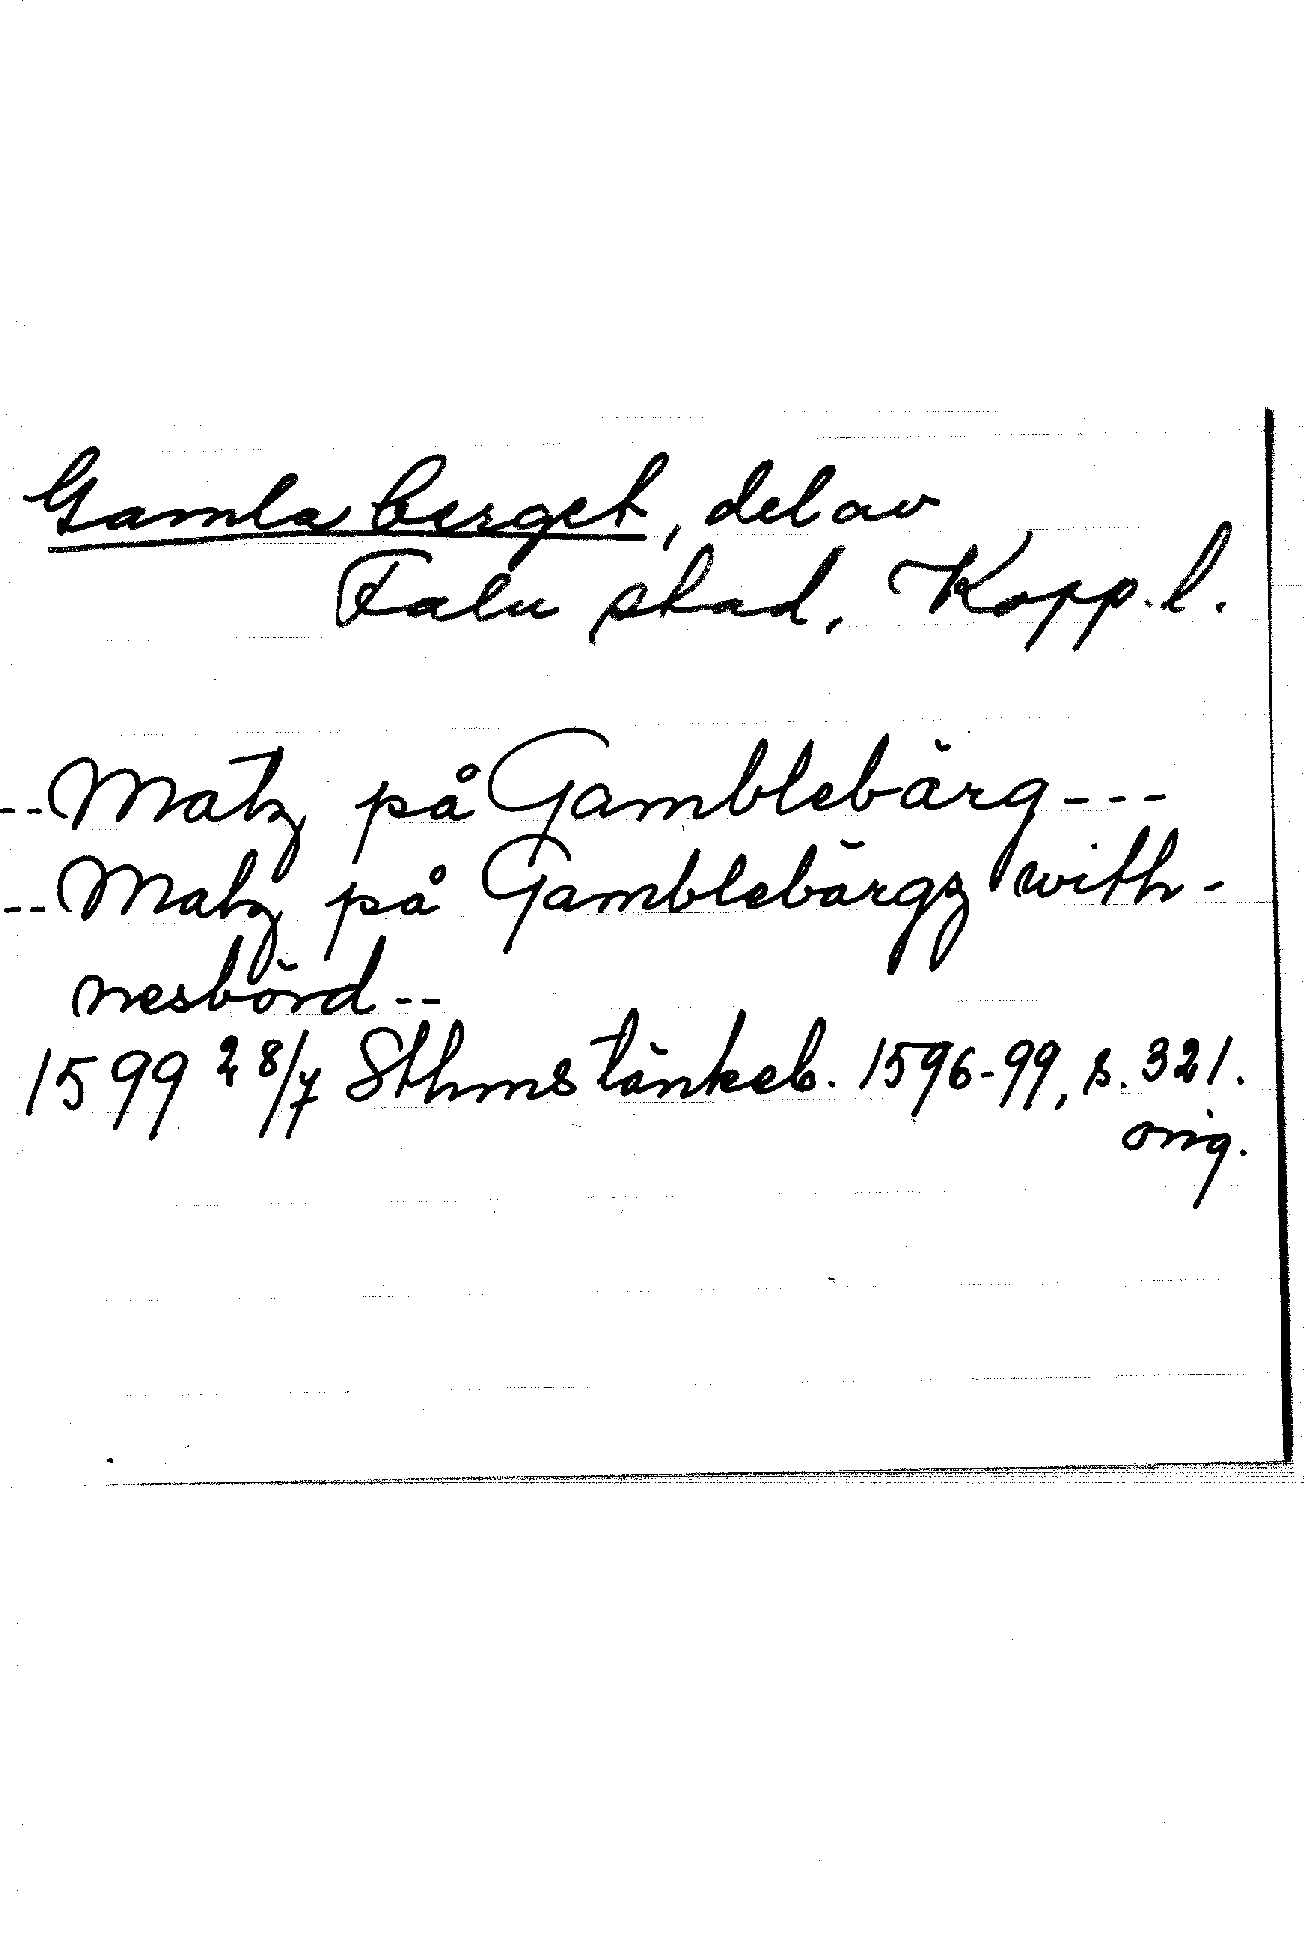 Gamla berget, del av
Falu stad, Kopp. l.
--Matz på Gamblebärg---
--Matz på Gamblebärgz with-
nesbörd--
1599 28/7 Sthms tänkeb. 1596-99, s. 321.
orig.